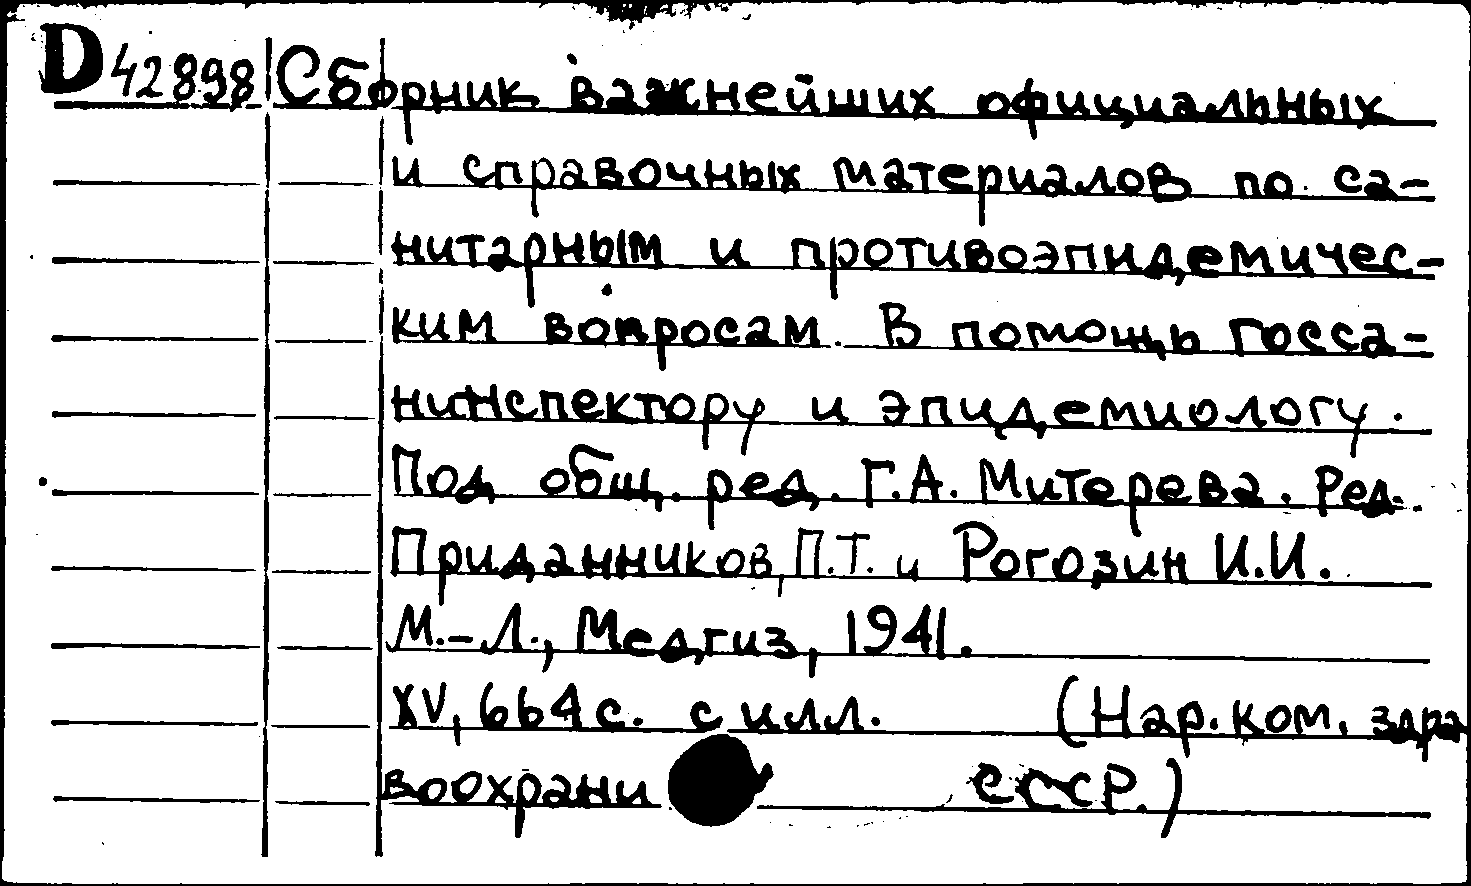 D 42898 Сборник важнейших официальных
и справочных материалов по са-
нитарным и противоэпидемичес-
ким вопросам. В помощь госса-
нинспектору и эпидемиологу.
Под общ. ред. Г.А. Митерева. Ред.
Приданников, П.Т. и Рогозин И.И.
М.-Л., Медгиз, 1941.
XV, 664 с. с илл. (Нар.ком. здра
воохрани СССР.)